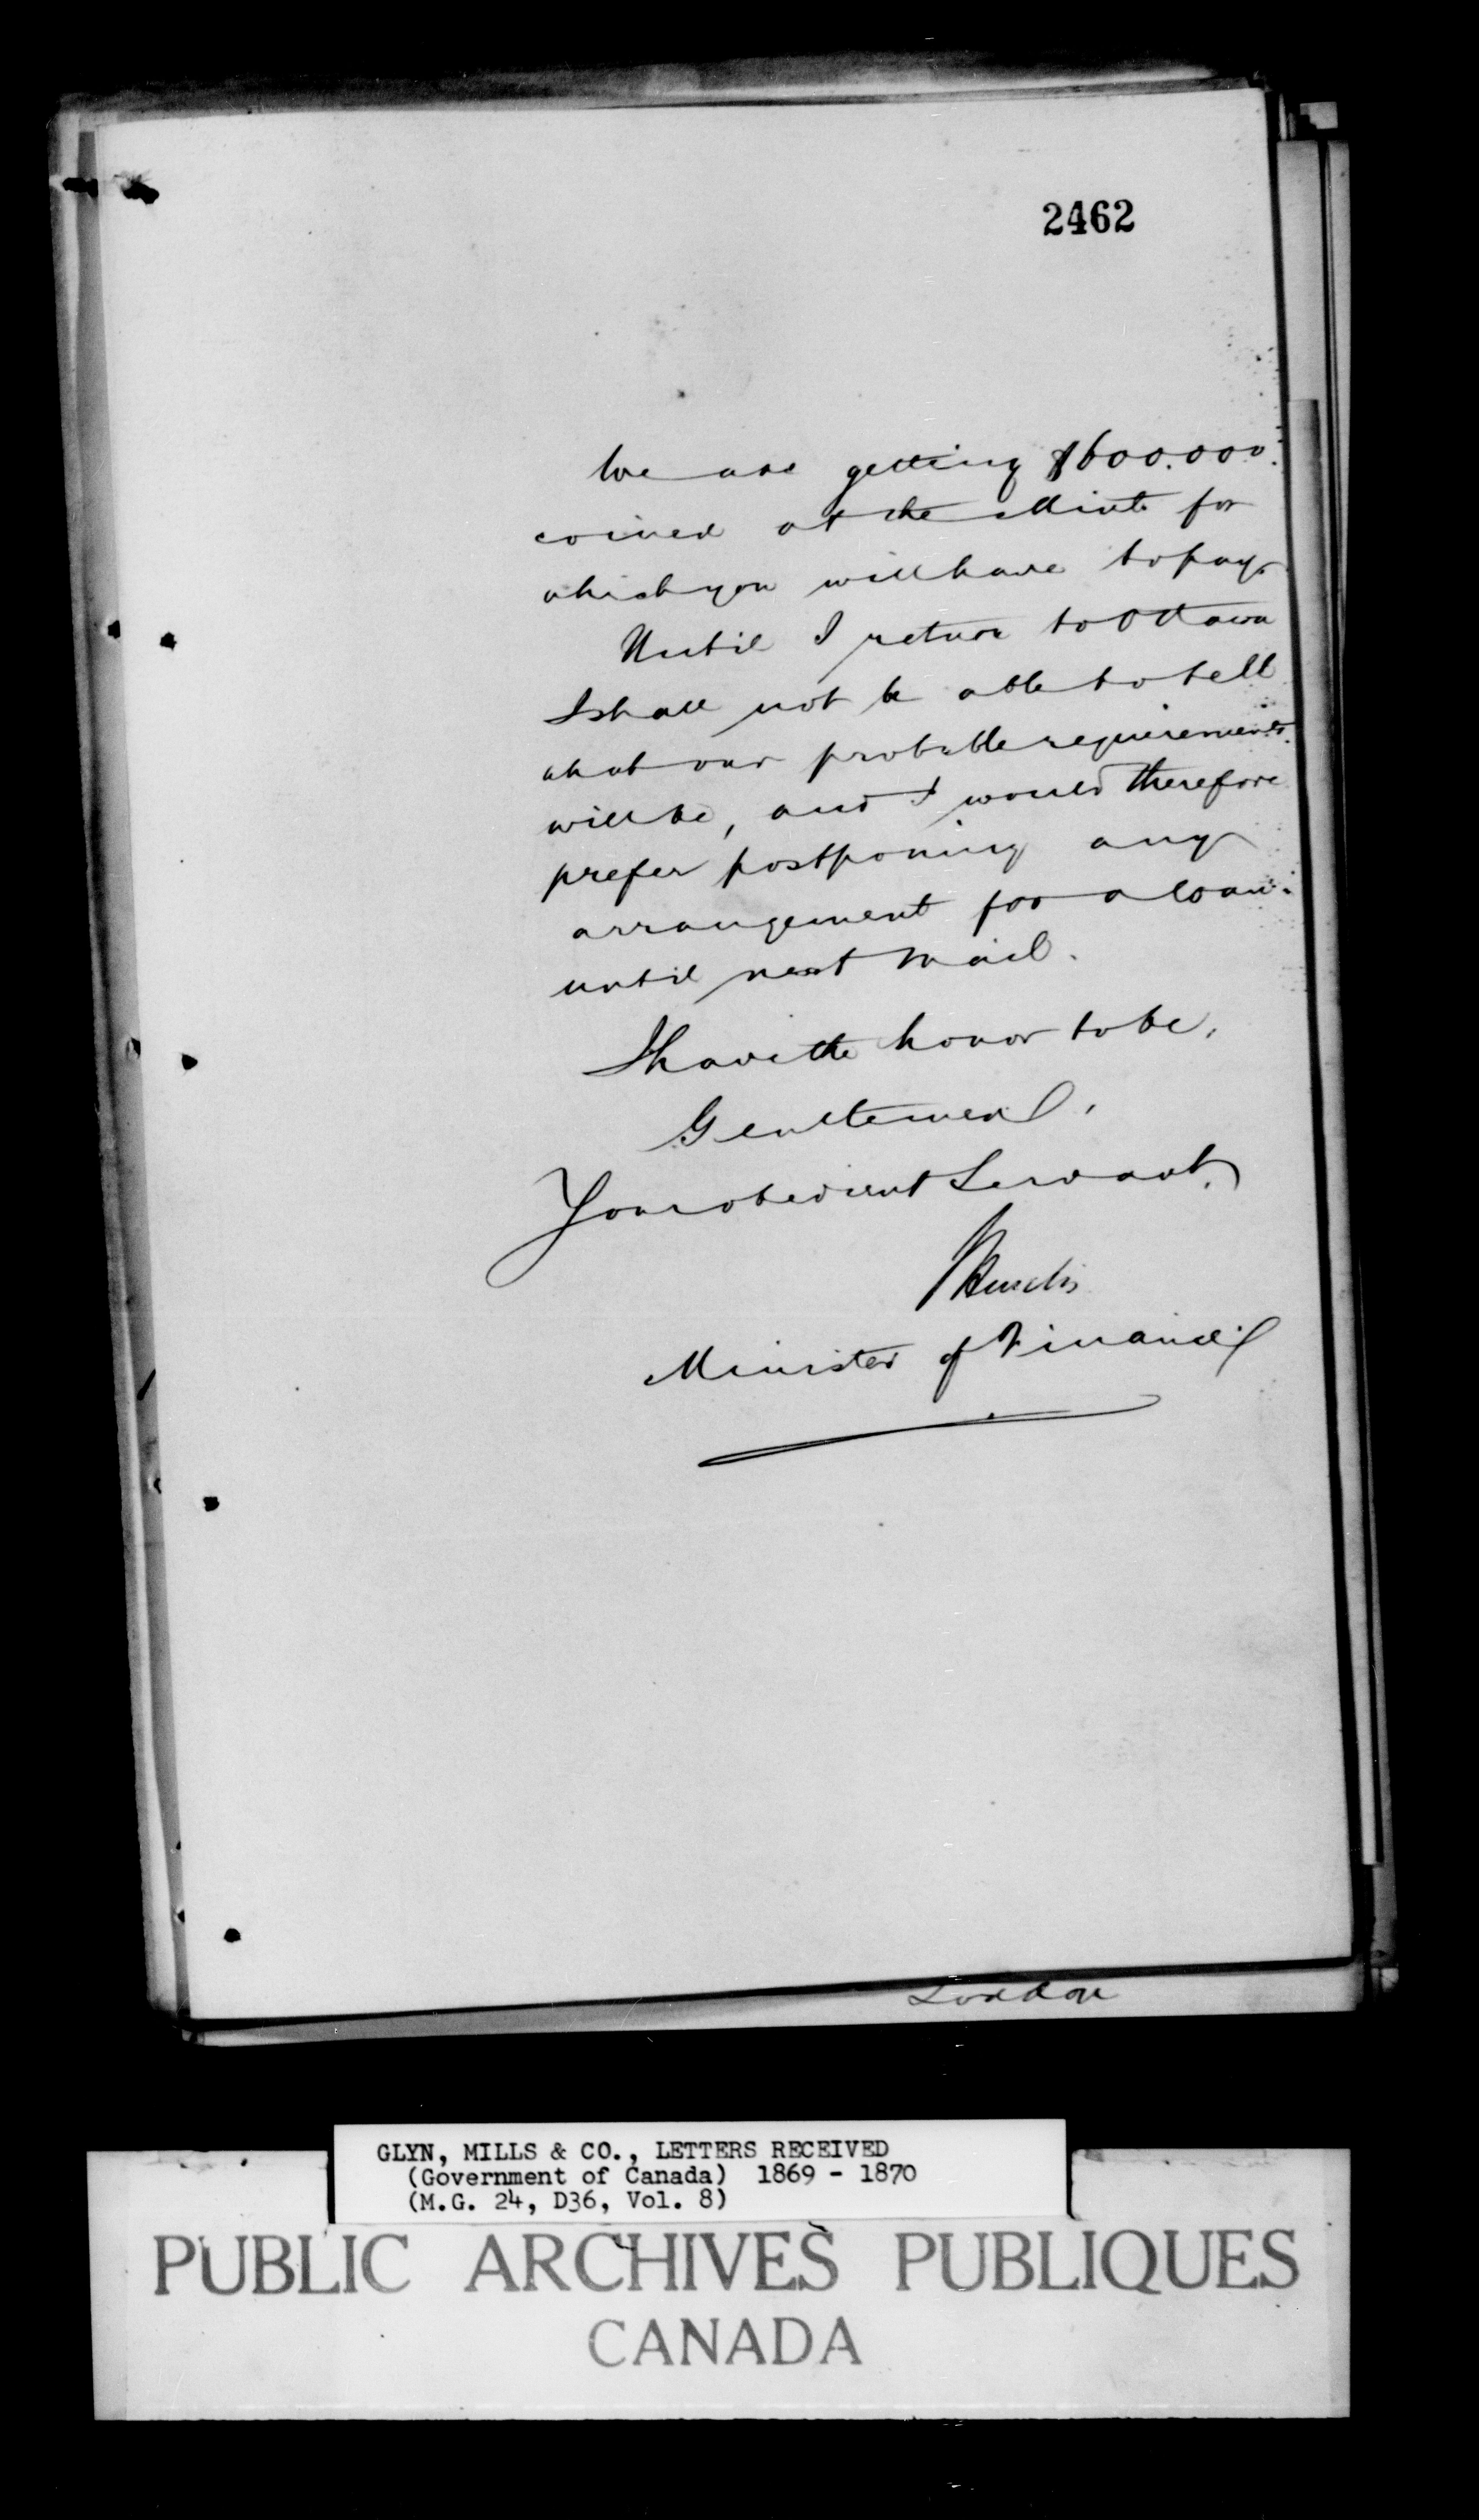 2462
We are getting $600.000.
coined at the Mint for
which you will have to pay.
Until I return to Ottawa
I shall not be able to tell
what our probable requirements
will be, and I would therefore
prefer postponing any
arrangement for a loan
until next mail.
I have the honor to be,
Gentlemen,
Your obedient Servant,
F Hincks
Minister of Finance
London
GLYN, MILLS & CO., LETTERS RECEIVED
(Government of Canada) 1869 - 1870
(M.G. 24, D36, Vol. 8)
PUBLIC ARCHIVES PUBLIQUES
CANADA